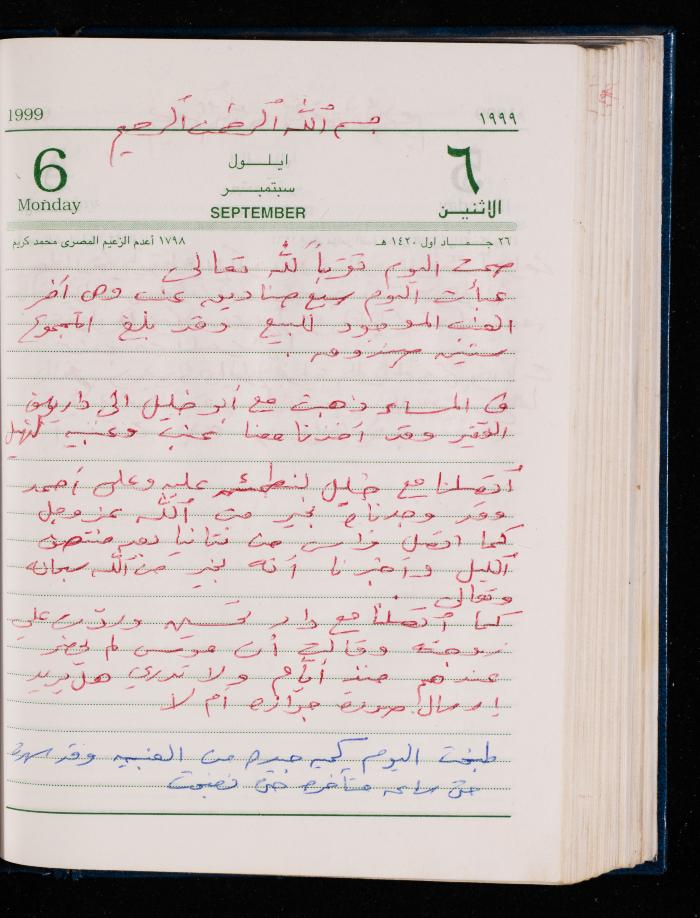 1999 ١٩٩٩
بسم الله الرحمن الرحيم
6 ايلول ٦
سبتمبر
Monday SEPTEMBER الاثنين
٢٦ جمـاد اول ١٤٢٠ هـ ١٧٩٨ أعدم الزعيم المصرى محمد كريم
صمت اليوم تقرباً لله تعالى
عبأت اليوم سبع صناديق عنب وهي آخر
العنب الموجود للبيع وقد بلغ المجموع
ستين صندوقه .
في المساء ذهبت مع أبو خليل الى دار
الفقير وقد أخذنا معنا عنب وعنبيه
أتصلنا مع خليل لنطمئن عليه وعلى أحمد
وقد وجدناهم بخير من الله عز وجل
كما اتصل فراس من نتانيا بعد منتصف
الليل وأخبرنا أنه بخير من الله سبحانه
وتعالى .
كما أتصلنا مع دار تحسين وردت علي
زوجته وقالت أن موسى لم يحضر
عندهم منذ أيام ولا تدري هل يريد
إرسال صورة جوازه أم لا
طبخت اليوم كميه جيده من العنبيه وقد سهرت
حتى ساعه متأخره حتى نضجت